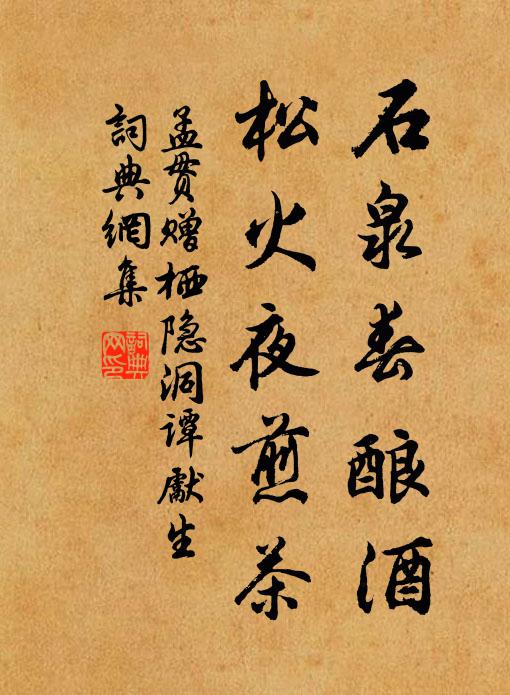 石泉春酿酒
松火夜煎茶
孟贯赠栖隐洞谭獻生
詞典網集
詞典
网印